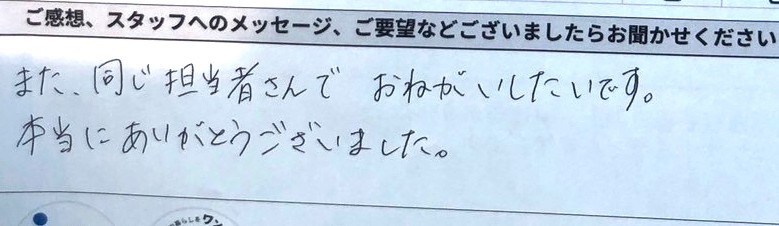 ご感想、スタッフへのメッセージ、ご要望などございましたらお聞かせください
また、同じ担当者さんで おねがいしたいです。
本当にありがとうございました。
暮らしをワン